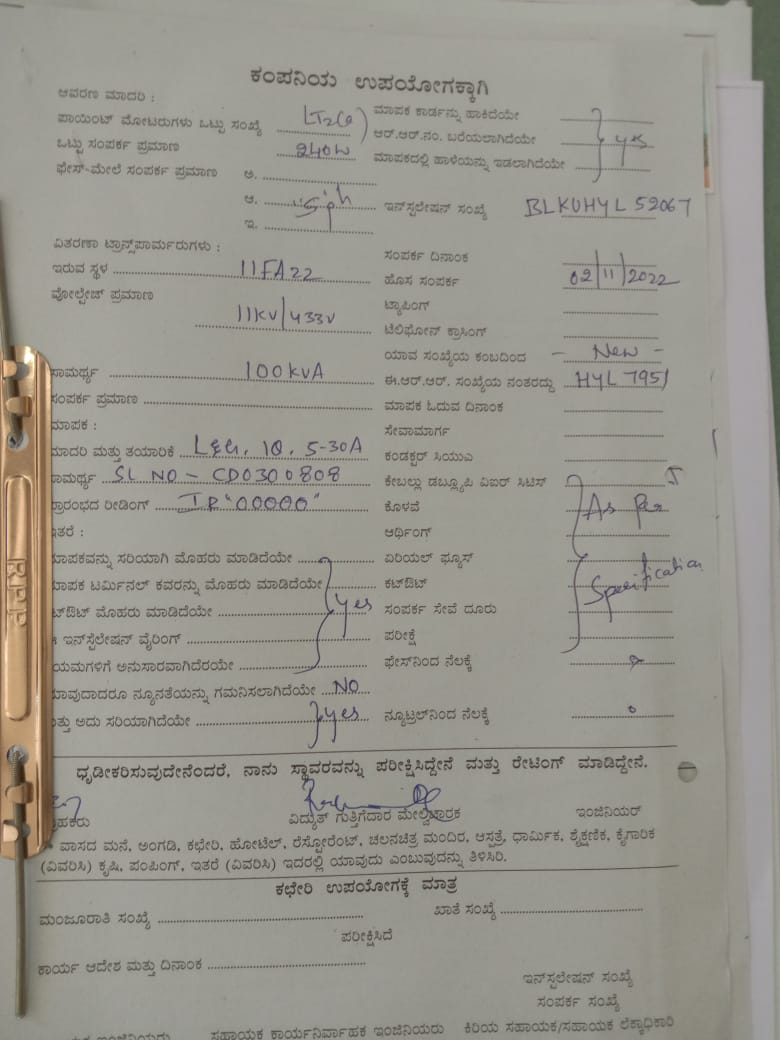 ಕಂಪನಿಯ ಉಪಯೋಗಕ್ಕಾಗಿ
ಆವರಣ ಮಾದರಿ :
ಪಾಯಿಂಟ್ ಮೋಟರುಗಳು ಒಟ್ಟು ಸಂಖ್ಯೆ
ಒಟ್ಟು ಸಂಪರ್ಕ ಪ್ರಮಾಣ 240W
ಫೇಸ್-ಮೇಲೆ ಸಂಪರ್ಕ ಪ್ರಮಾಣ ಅ.
ಆ.
ಇ.
ಮಾಪಕ ಕಾರ್ಡನ್ನು ಹಾಕಿದೆಯೇ
ಆರ್.ಆರ್.ನಂ. ಬರೆಯಲಾಗಿದೆಯೇ yes
ಮಾಪಕದಲ್ಲಿ ಹಾಳೆಯನ್ನು ಇಡಲಾಗಿದೆಯೇ
ಇನ್‌ಸ್ಟಲೇಷನ್ ಸಂಖ್ಯೆ BLKUHYL 52067
ವಿತರಣಾ ಟ್ರಾನ್ಸ್‌ಫಾರ್ಮರುಗಳು :
ಇರುವ ಸ್ಥಳ 11FA22
ವೋಲ್ಟೇಜ್ ಪ್ರಮಾಣ
11KV/433V
ಸಾಮರ್ಥ್ಯ 100KVA
ಸಂಪರ್ಕ ಪ್ರಮಾಣ
ಮಾಪಕ :
ಮಾದರಿ ಮತ್ತು ತಯಾರಿಕೆ L&G. 1Ø. 5-30A
ಸಾಮರ್ಥ್ಯ SL NO - CD0300808
ಪ್ರಾರಂಭದ ರೀಡಿಂಗ್ IR "00000"
ಇತರೆ :
ಮಾಪಕವನ್ನು ಸರಿಯಾಗಿ ಮೊಹರು ಮಾಡಿದೆಯೇ
ಮಾಪಕ ಟರ್ಮಿನಲ್ ಕವರನ್ನು ಮೊಹರು ಮಾಡಿದೆಯೇ
ಕಟ್‌ಔಟ್ ಮೊಹರು ಮಾಡಿದೆಯೇ yes
ಇನ್‌ಸ್ಟೆಲೇಷನ್ ವೈರಿಂಗ್
ನಿಯಮಗಳಿಗೆ ಅನುಸಾರವಾಗಿದೆರಯೇ
ಯಾವುದಾದರೂ ನ್ಯೂನತೆಯನ್ನು ಗಮನಿಸಲಾಗಿದೆಯೇ NO
ಮತ್ತು ಅದು ಸರಿಯಾಗಿದೆಯೇ yes
ಸಂಪರ್ಕ ದಿನಾಂಕ
ಹೊಸ ಸಂಪರ್ಕ 02/11/2022
ಟ್ಯಾಪಿಂಗ್
ಟೆಲಿಫೋನ್ ಕ್ರಾಸಿಂಗ್
ಯಾವ ಸಂಖ್ಯೆಯ ಕಂಬದಿಂದ - New -
ಈ.ಆರ್.ಆರ್. ಸಂಖ್ಯೆಯ ನಂತರದ್ದು HYL 7951
ಮಾಪಕ ಓದುವ ದಿನಾಂಕ
ಸೇವಾಮಾರ್ಗ
ಕಂಡಕ್ಟರ್ ಸಿಯುಎ
ಕೇಬಲ್ಲು ಡಬ್ಲ್ಯೂಪಿ ವಿಐರ್ ಸಿಟಿಸ್
ಕೊಳವೆ As Per
ಅರ್ಥಿಂಗ್
ಏರಿಯಲ್ ಫ್ಯೂಸ್
ಕಟ್‌ಔಟ್ Specification
ಸಂಪರ್ಕ ಸೇವೆ ದೂರು
ಪರೀಕ್ಷೆ
ಫೇಸ್‌ನಿಂದ ನೆಲಕ್ಕೆ
ನ್ಯೂಟ್ರಲ್‌ನಿಂದ ನೆಲಕ್ಕೆ
ಧೃಡೀಕರಿಸುವುದೇನೆಂದರೆ, ನಾನು ಸ್ಥಾವರವನ್ನು ಪರೀಕ್ಷಿಸಿದ್ದೇನೆ ಮತ್ತು ರೇಟಿಂಗ್ ಮಾಡಿದ್ದೇನೆ.
ಗ್ರಾಹಕರು ವಿದ್ಯುತ್ ಗುತ್ತಿಗೆದಾರ ಮೇಲ್ವಿಚಾರಕ ಇಂಜಿನಿಯರ್
* ವಾಸದ ಮನೆ, ಅಂಗಡಿ, ಕಛೇರಿ, ಹೋಟೆಲ್, ರೆಸ್ಟೋರೆಂಟ್, ಚಲನಚಿತ್ರ ಮಂದಿರ, ಆಸ್ಪತ್ರೆ, ಧಾರ್ಮಿಕ, ಶೈಕ್ಷಣಿಕ, ಕೈಗಾರಿಕ
(ವಿವರಿಸಿ) ಕೃಷಿ, ಪಂಪಿಂಗ್, ಇತರೆ (ವಿವರಿಸಿ) ಇದರಲ್ಲಿ ಯಾವುದು ಎಂಬುವುದನ್ನು ತಿಳಿಸಿರಿ.
ಕಛೇರಿ ಉಪಯೋಗಕ್ಕೆ ಮಾತ್ರ
ಮಂಜೂರಾತಿ ಸಂಖ್ಯೆ ಖಾತೆ ಸಂಖ್ಯೆ
ಪರೀಕ್ಷಿಸಿದೆ
ಕಾರ್ಯ ಆದೇಶ ಮತ್ತು ದಿನಾಂಕ
ಇನ್‌ಸ್ಟಲೇಷನ್ ಸಂಖ್ಯೆ
ಸಂಪರ್ಕ ಸಂಖ್ಯೆ
ಇಂಜಿನಿಯರು ಸಹಾಯಕ ಕಾರ್ಯನಿರ್ವಾಹಕ ಇಂಜಿನಿಯರು ಕಿರಿಯ ಸಹಾಯಕ/ಸಹಾಯಕ ಲೆಕ್ಕಾಧಿಕಾರಿ
RPP